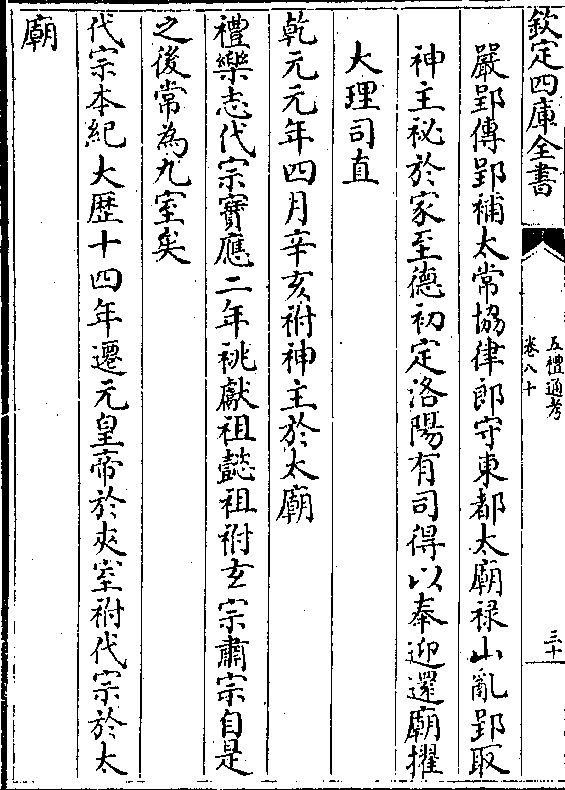 欽定四庫全書
五禮通考
卷八十
三十
嚴郢傳郢補太常協律郎守東都太廟祿山亂郢取
神主祕於家至德初定洛陽有司得以奉迎還廟擢
大理司直
乾元元年四月辛亥祔神主於太廟
禮樂志代宗寶應二年祧獻祖懿祖祔玄宗肅宗自是
之後常為九室矣
代宗本紀大歷十四年遷元皇帝於夾室祔代宗於太
廟